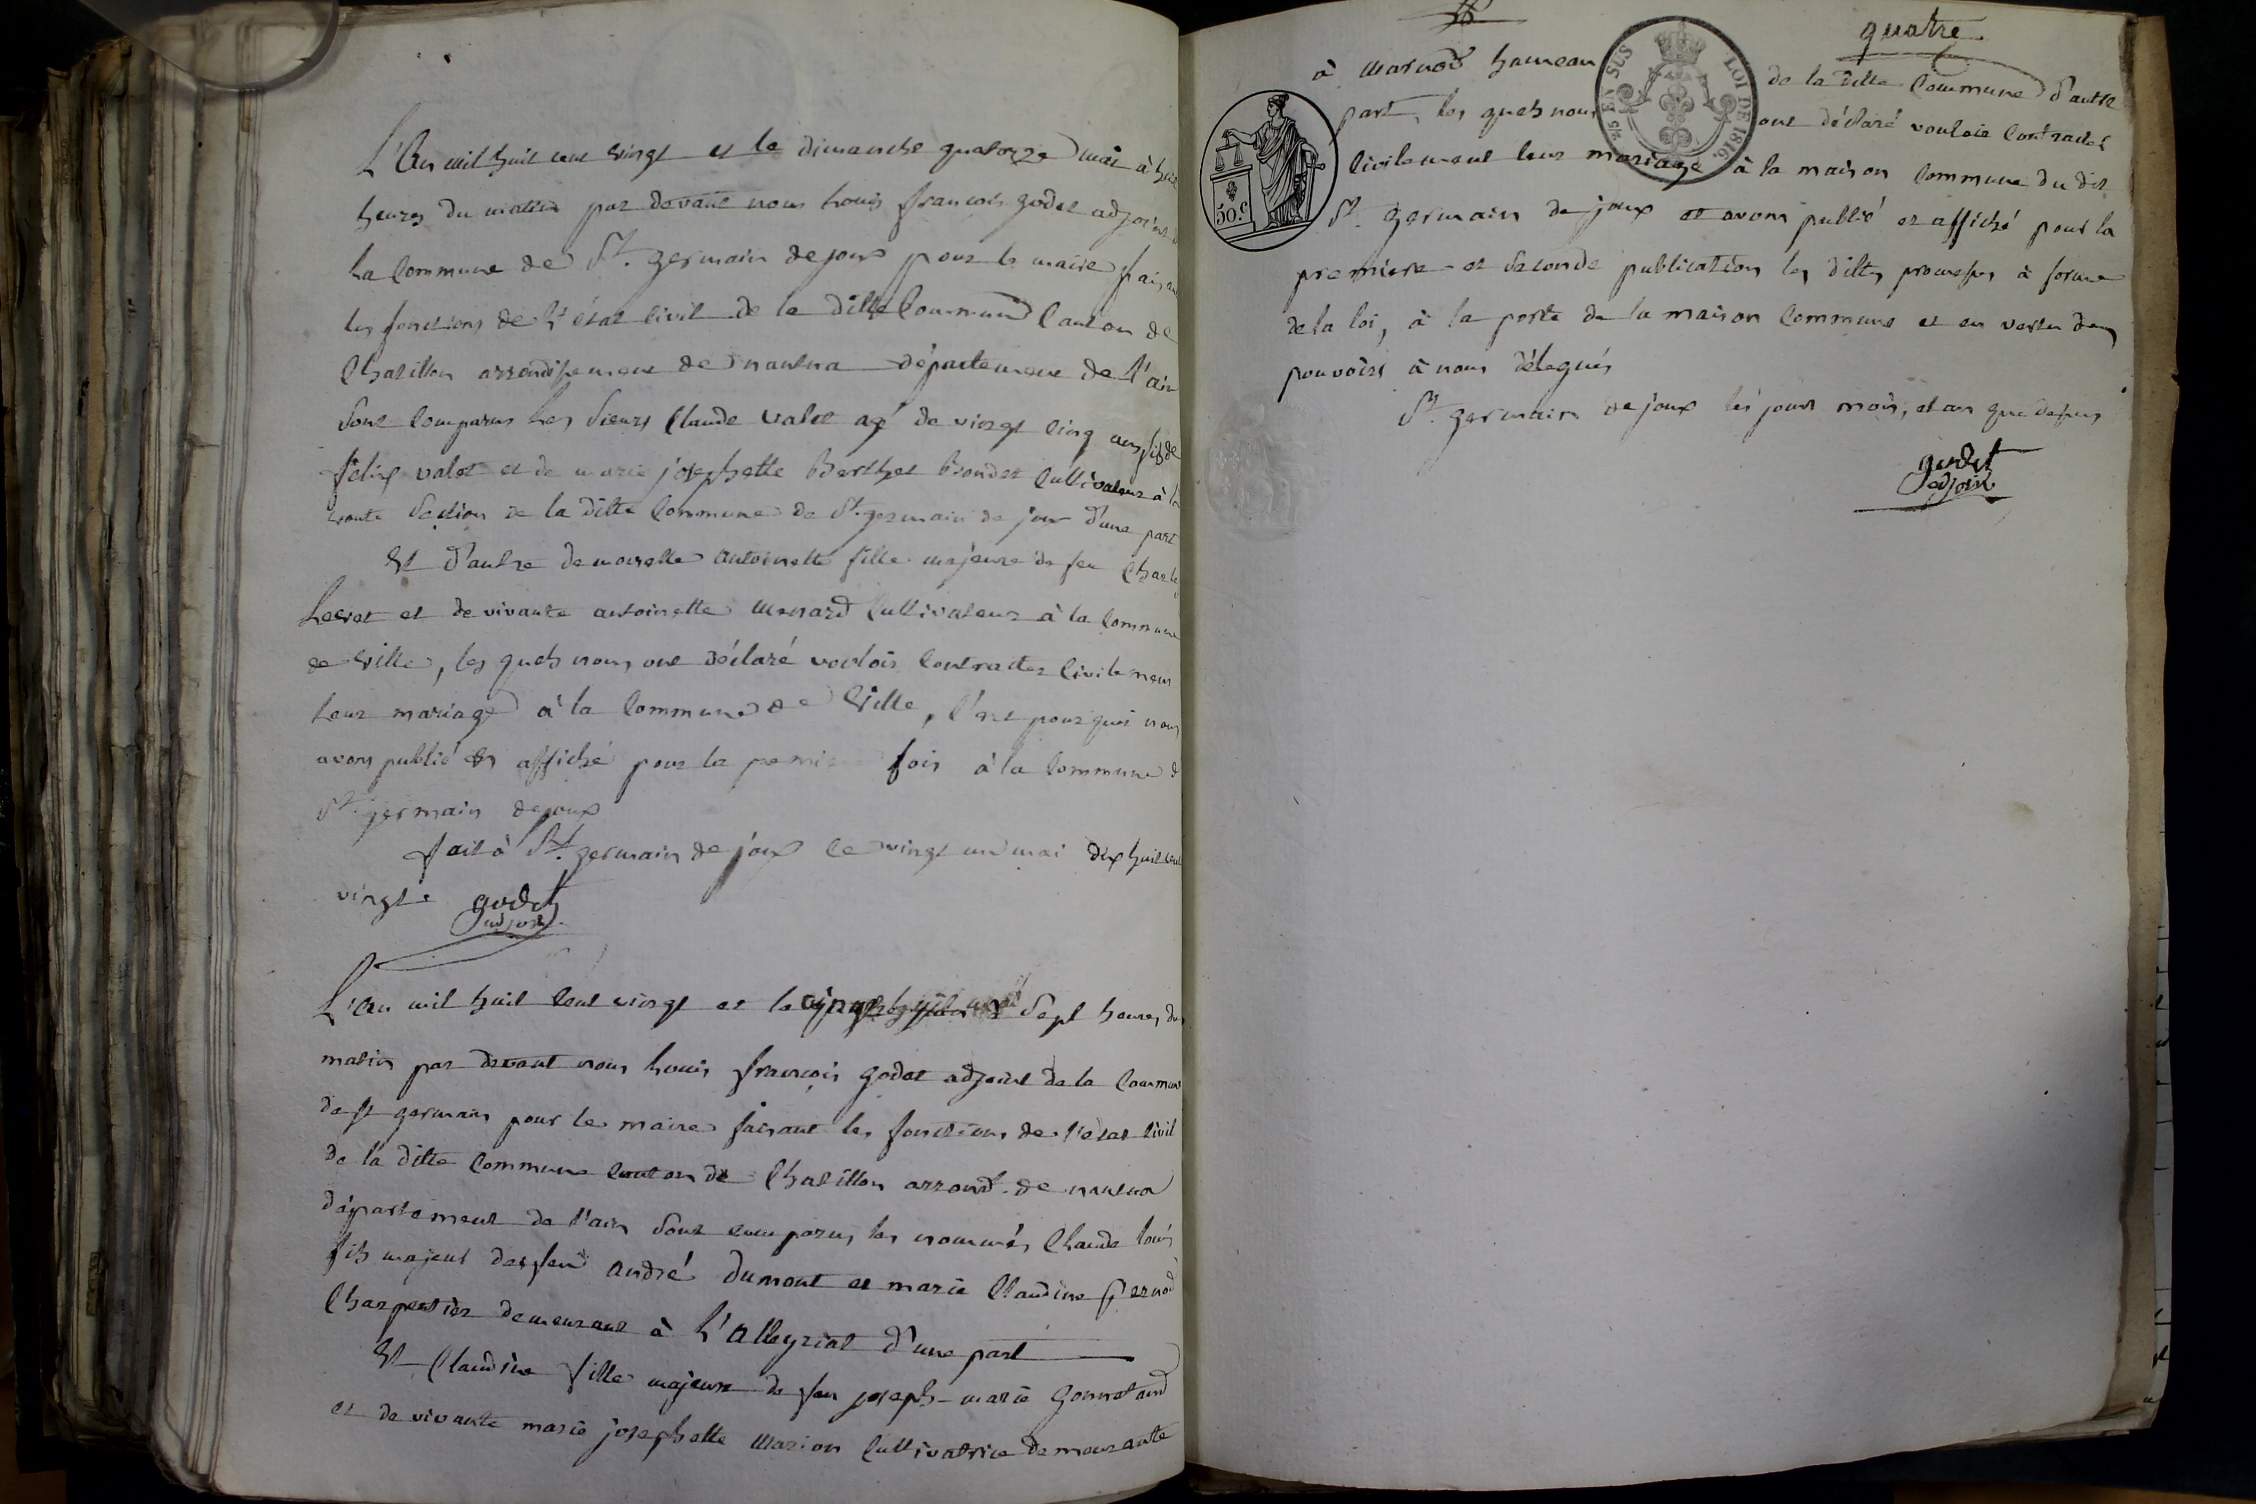 L'An mil huit cent vingt et le dimanche quatorze mai à huit
heures du matin par devant nous Louis françois godet adjoint de
la Commune de St. germain dejoux pour le maire faisant
les fonctions de l'état civil de la ditte Commune Canton de
Chatillon arrondissement de nantua département de l'ain
sont Comparus Les sieurs Claude valet agé de vingt cinq ans fils de
félix valet et de marie josephette Berthet Bondet Cultivateur à la
section de la ditte Commune de St. germain de joux d'une part
Et d'autre demoiselle antoinette fille majeure de feu Charle
et de vivante antoinette menard Cultivateur à la Commune
de Ville, les quels nous ont déclaré vouloir Contracter Civilement
leur mariage à la Commune de Ville, C'est pourquoi nous
avons publié et affiché pour la premiere fois à la Commune de
St. germain dejoux
fait à St. germain de joux le vingt un mai dix huit cent
vingt. godet
adjoint
L'An mil huit Cent vingt et le vingt huit mai à Sept heures du
matin par devant nous Louis françois godet adjoint de la Commune
de st germain pour le maire faisant les fonctions de l'état Civil
de la ditte Commune Canton de Chatillon arrondt. de nantua
département de l'ain sont comparus les nommés Claude Louis
fils majeur de feu andré Dumont et marie Claudine Pernod
Charpentier demeurant à L'Alleyriat d'une part
Et Claudine fille majeure de feu joseph-marie gonnetand
et de vivante marie josephette marion Cultivatrice demeurante
quatre
à marnod hameau de la ditte Commune d'autre
part, les quels nous ont déclaré vouloir Contracter
Civilement leur mariage à la maison Commune du dit
St. germain de joux et avons publié et affiché pour la
premiere et seconde publication les dittes promesses à forme
de la loi, à la porte de la maison Commune et en vertu des
pouvoirs à nous délégués
St. germain de joux les jour mois, et an que dessus
godet
adjoint
2/5 EN SUS
LOI DE 1816.
50.C